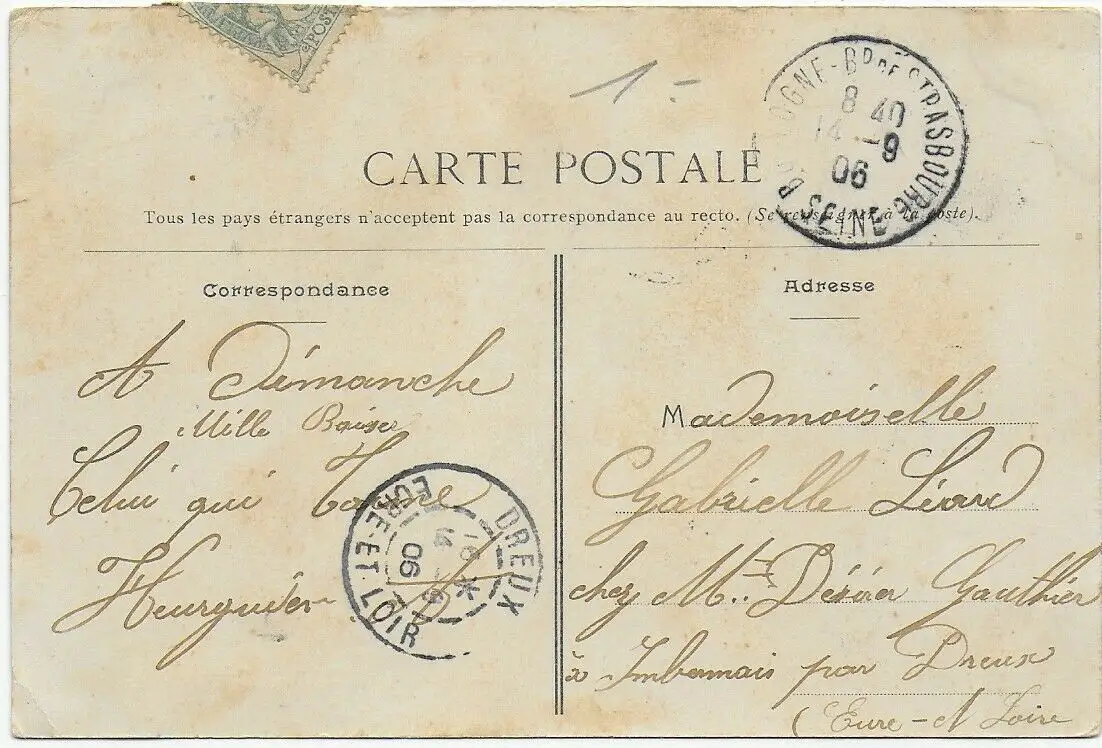 POST
1-
BOULOGNE-BD DE STRASBOURG
8 40
14 -9
06
SEINE
CARTE POSTALE
Tous les pays étrangers n'acceptent pas la correspondance au recto. (Se renseigner à la poste).
Correspondance
A Dimanche
Mille Baiser
Celui qui
DREUX
16
14 -9
06
EURE-ET-LOIR
Adresse
Mademoiselle
Gabrielle
chez Mr Gauthier
à Imbermais par Dreux
(Eure-et Loire